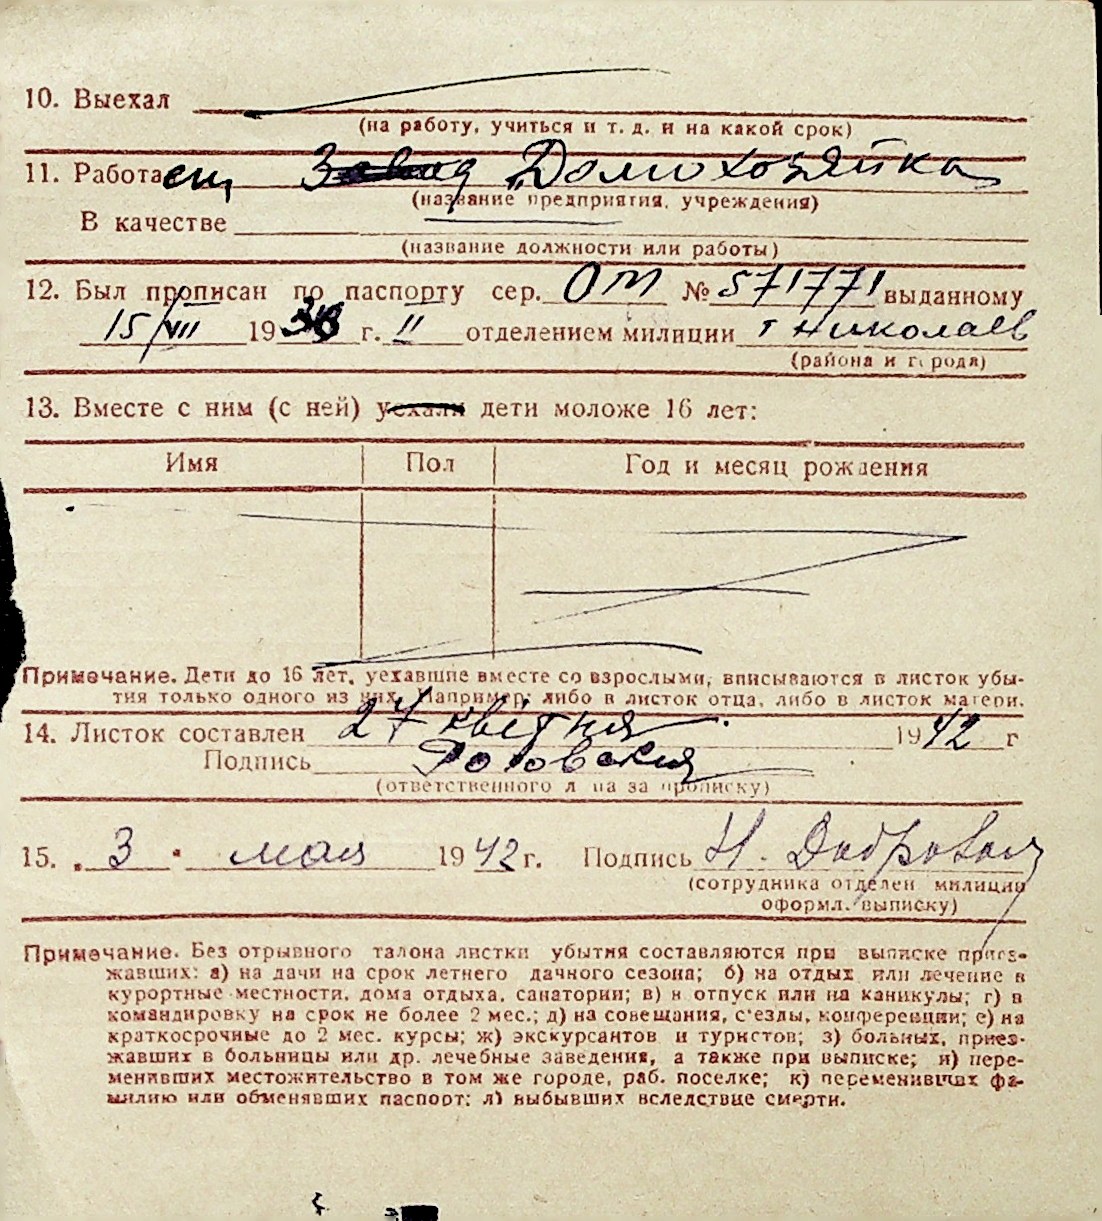 10. Выехал
(на работу, учиться и т. д. и на какой срок)
11. Работает Завод „Домохозяйка
(название предприятия, учреждения)
В качестве
(название должности или работы)
12. Был прописан по паспорту сер. ОМ № 571771 выданному
15/VIII 1938 г. II отделением милиции г Николаев
(района и города)
13. Вместе с ним (с ней) уехали дети моложе 16 лет:
Имя Пол Год и месяц рождения
Примечание. Дети до 16 лет, уехавшие вместе со взрослыми, вписываются в листок убы-
тия только одного из них. Например: либо в листок отца, либо в листок матери.
14. Листок составлен 27 квітня 1942 г
Подпись
(ответственного лица за прописку)
15. „3" мая 1942 г. Подпись Н.
(сотрудника отделен милиции
оформл. выписку)
Примечание. Без отрывного талона листки убытия составляются при выписке приез-
жавших: а) на дачи на срок летнего дачного сезона; б) на отдых или лечение в
курортные местности, дома отдыха, санатории; в) в отпуск или на каникулы; г) в
командировку на срок не более 2 мес.; д) на совещания, с'езды, конференции; е) на
краткосрочные до 2 мес. курсы; ж) экскурсантов и туристов; з) больных, приез-
жавших в больницы или др. лечебные заведения, а также при выписке; и) пере-
менивших местожительство в том же городе, раб. поселке; к) переменивших фа-
милию или обменявших паспорт; л) выбывших вследствие смерти.